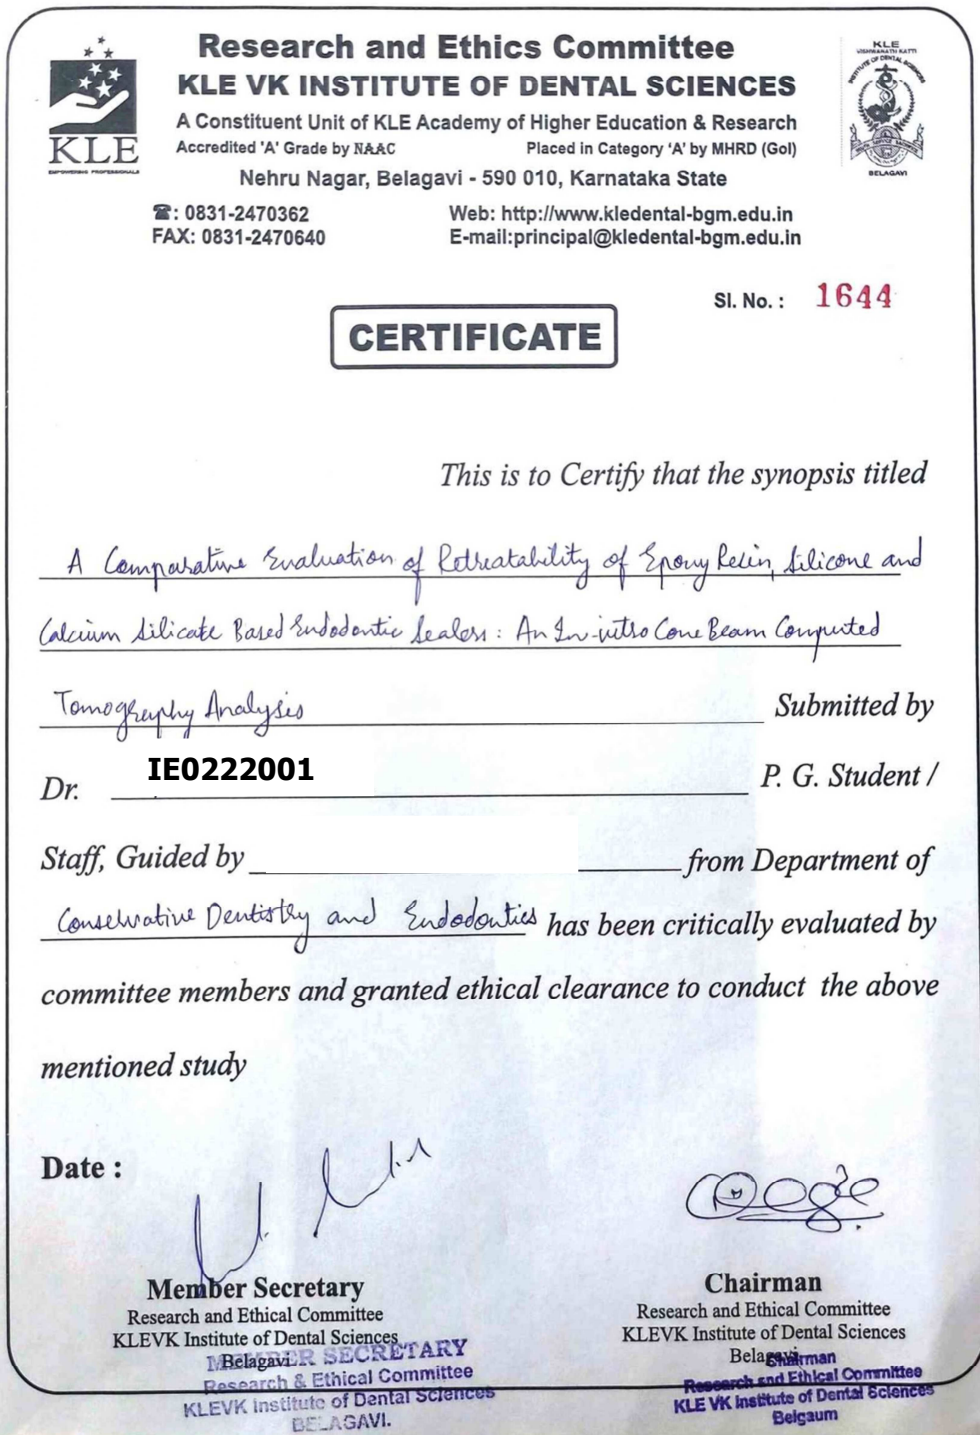 Research and Ethics Committee
KLE VK INSTITUTE OF DENTAL SCIENCES
A Constituent Unit of KLE Academy of Higher Education & Research
Accredited 'A' Grade by NAAC Placed in Category 'A' by MHRD (GoI)
Nehru Nagar, Belagavi - 590 010, Karnataka State
☎: 0831-2470362 Web: http://www.kledental-bgm.edu.in
FAX: 0831-2470640 E-mail:principal@kledental-bgm.edu.in
KLE
EMPOWERING PROFESSIONALS
KLE
VISHWANATH KATTI
INSTITUTE OF DENTAL SCIENCES
BELAGAVI
Sl. No. : 1644
CERTIFICATE
This is to Certify that the synopsis titled
A Comparative Evaluation of Retreatability of Epoxy Resin, Silicone and
Calcium Silicate Based Endodontic Sealers : An In-vitro Cone Beam Computed
Tomography Analysis Submitted by
Dr. IE0222001 P. G. Student /
Staff, Guided by from Department of
Conservative Dentistry and Endodontics has been critically evaluated by
committee members and granted ethical clearance to conduct the above
mentioned study
Date :
Member Secretary
Research and Ethical Committee
KLEVK Institute of Dental Sciences
Belagavi
MEMBER SECRETARY
Research & Ethical Committee
KLEVK Institute of Dental Sciences
BELAGAVI.
Chairman
Research and Ethical Committee
KLEVK Institute of Dental Sciences
Belagavi
Chairman
Research and Ethical Committee
KLE VK Institute of Dental Sciences
Belgaum